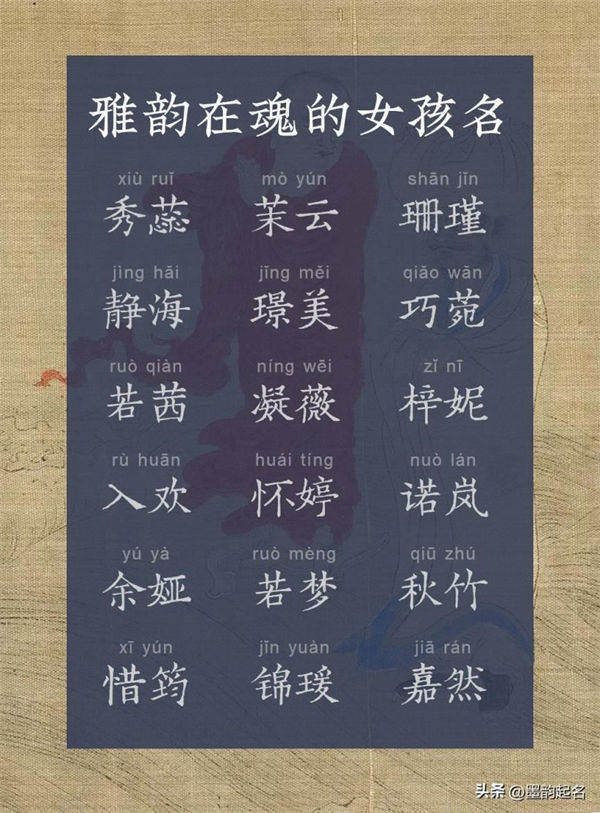 雅韵在魂的女孩名
xiù ruǐ mò yún shān jǐn
秀蕊 茉云 珊瑾
jìng hǎi jǐng měi qiǎo wǎn
静海 璟美 巧菀
ruò qiàn níng wēi zǐ nī
若茜 凝薇 梓妮
rù huān huái tíng nuò lán
入欢 怀婷 诺岚
yú yà ruò mèng qiū zhú
余娅 若梦 秋竹
xī yún jǐn yuàn jiā rán
惜筠 锦瑗 嘉然
头条 @墨韵起名